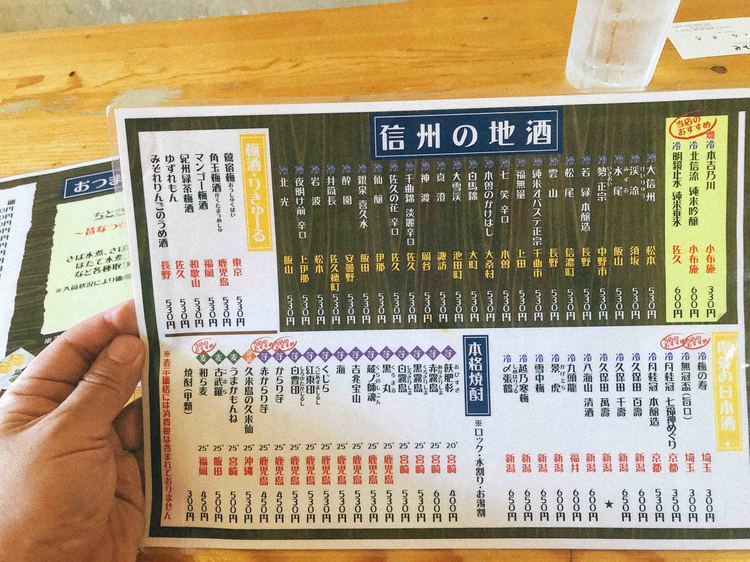 信州の地酒
当店のおすすめ
燗 冷 本吉乃川 小布施 330円
冷 北信流 純米吟醸 小布施 600円
冷 明鏡止水 純米垂氷 佐久 600円
冷 大信州 松本 530円
冷 渓流 須坂 530円
冷 水尾 飯山 530円
冷 勢正宗 中野市 530円
冷 若緑 本醸造 長野 530円
冷 松尾 信濃町 530円
冷 雲山 長野 530円
冷 福無量 上田 530円
冷 純米オバステ正宗 千曲市 530円
冷 七笑 辛口 木曽 530円
冷 木曽のかけはし 大桑村 530円
冷 白馬錦 大町 530円
冷 大雪渓 池田町 530円
冷 真澄 諏訪 530円
冷 神渡 岡谷 530円
冷 千曲錦 淡麗辛口 佐久 530円
冷 佐久の花 辛口 佐久 530円
冷 仙醸 伊那 530円
冷 喜久水 飯田 530円
冷 酔園 安曇野 530円
冷 井筒長 佐久穂町 530円
冷 岩波 松本 530円
冷 夜明け前 辛口 上伊那 530円
冷 北光 飯山 530円
梅酒・りきゅーる
鶯宿梅 おうしゅくばい 東京 530円
角玉梅酒 かくたまうめしゅ 鹿児島 530円
マンゴー梅酒 福岡 530円
紀州緑茶梅酒 和歌山 530円
ゆずれもん 佐久 530円
みぞれりんごのうめ酒 長野 530円
の日本酒
冷 梅の寿 埼玉 300円
冷 無冠盃(旨口) 埼玉 300円
おすすめ 冷 丹桂冠 七福神めぐり 京都 330円
冷 月桂冠 本醸造 京都 530円
冷 久保田 百壽 新潟 650円
冷 久保田 千壽 新潟
冷 久保田 萬壽 新潟 ★
冷 八海山 清酒 新潟 600円
冷 九頭龍 福井 600円
冷 景虎 新潟 600円
冷 雪中梅 新潟 650円
冷 越乃寒梅 新潟 650円
冷 〆張鶴 新潟 650円
本格焼酎
※ロック・水割り・お湯割
芋 飫肥杉 おびすぎ 20° 宮崎 400円
芋 赤霧島 25° 宮崎 600円
芋 黒霧島 25° 宮崎 530円
芋 白霧島 25° 宮崎 530円
芋 黒丸 25° 鹿児島 530円
芋 蔵の師魂 25° 鹿児島 530円
芋 吉兆宝山 25° 鹿児島 530円
芋 海 25° 鹿児島 530円
芋 くじら 25° 鹿児島 530円
芋 東印 25° 鹿児島 530円
芋 白豊印 25° 鹿児島 530円
芋 からり芋 25° 鹿児島 450円
芋 赤からり芋 25° 鹿児島 450円
久米島の久米仙 25° 沖縄 530円
麦 うまかもんね 25° 宮崎 500円
麦 古武羅 25° 飯田 500円
麦 和ら麦 25° 福岡 450円
焼酎(甲類) 300円
※表示価格には消費税は含まれておりません
おつま